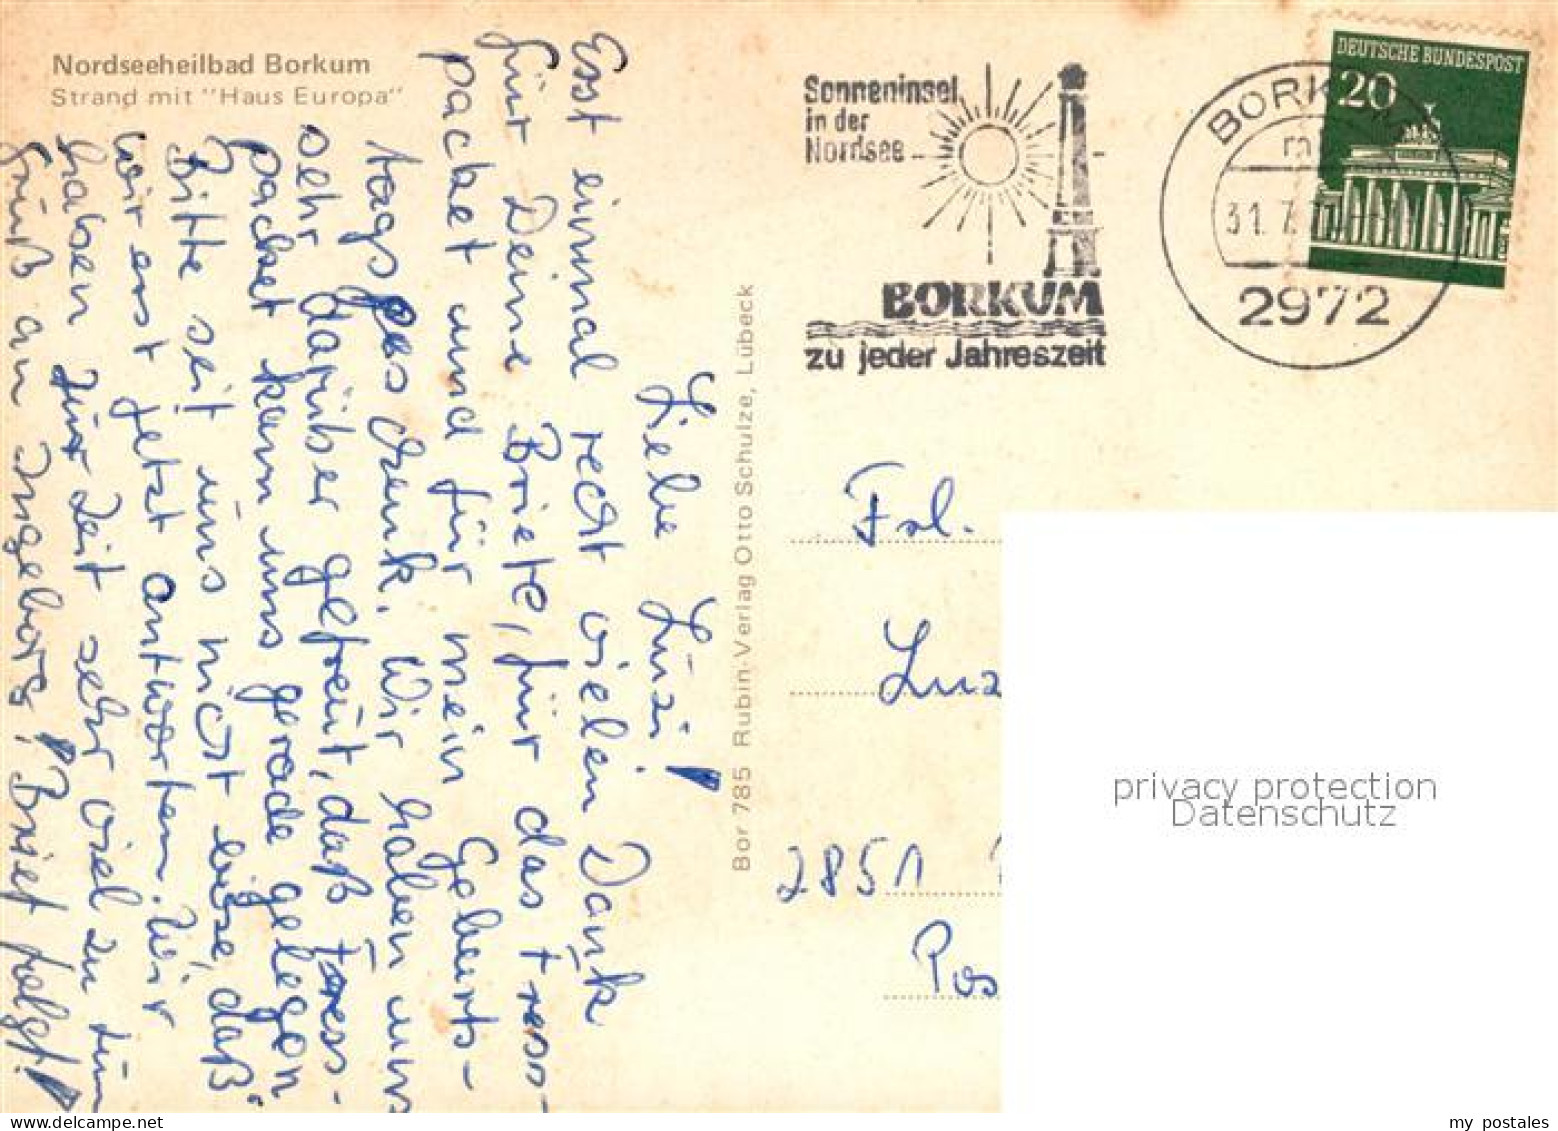 Nordseeheilbad Borkum
Strand mit "Haus Europa"
Sonneninsel
in der
Nordsee
BORKUM
zu jeder Jahreszeit
BORKUM
31. 7.
2972
DEUTSCHE BUNDESPOST
20
Bor 785 Rubin-Verlag Otto Schulze, Lübeck
Liebe Luzi!
Erst einmal recht vielen Dank
für Deine Briefe, für das Fress-
packet und für mein Geburts-
tagsgeschenk. Wir haben uns
sehr darüber gefreut, daß Fress-
packet kam uns gerade gelegen
Bitte seit uns nicht böse, daß
wir erst jetzt antworten. Wir
haben zur Zeit sehr viel zu tun
Gruß an Ingeborg! Brief folgt!
Frl.
Luz
2851
Pos
privacy protection
Datenschutz
my postales